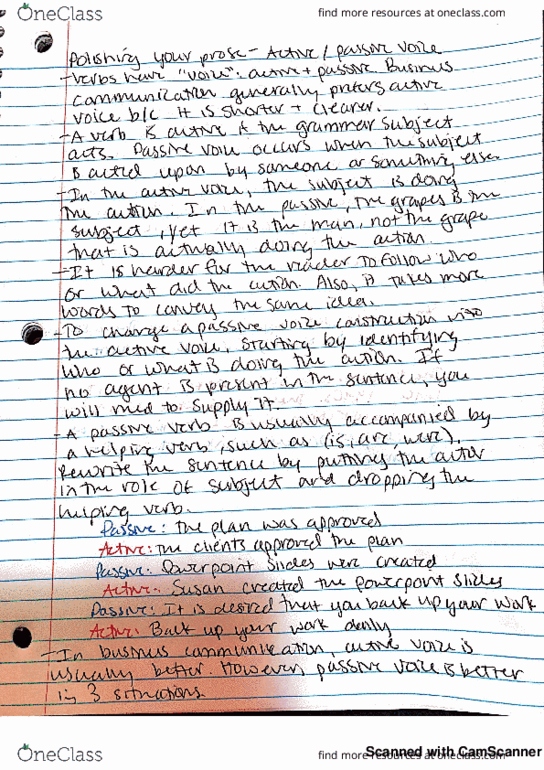 OneClass
find more resources at oneclass.com
Polishing your prose - Active / passive voice
- Verbs have "voice": active + passive. Business
communication generally prefers active
voice b/c it is shorter + clearer.
- A verb is active if the grammar subject
acts. Passive voice occurs when the subject
is acted upon by someone or something else
- In the active voice, the subject is doing
the action. In the passive, the grapes is the
subject, yet it is the man, not the grape
that is actually doing the action.
- It is harder for the reader to follow who
or what did the action. Also, it takes more
words to convey the same idea.
- To change a passive voice construction into
the active voice, starting by identifying
who or what is doing the action. If
no agent is present in the sentence, you
will need to supply it.
- A passive verb is usually accompanied by
a helping verb, such as (is, are, were).
Rewrite the sentence by putting the actor
in the role of subject and dropping the
helping verb.
Passive: The plan was approved
Active: the clients approved the plan
Passive: Powerpoint slides were created
Active: Susan created the powerpoint slides
Passive: It is desired that you back up your work
Active: Back up your work daily
- In business communication, active voice is
usually better. However, passive voice is better
in 3 situations.
OneClass
find more resources at oneclass.com
Scanned with CamScanner